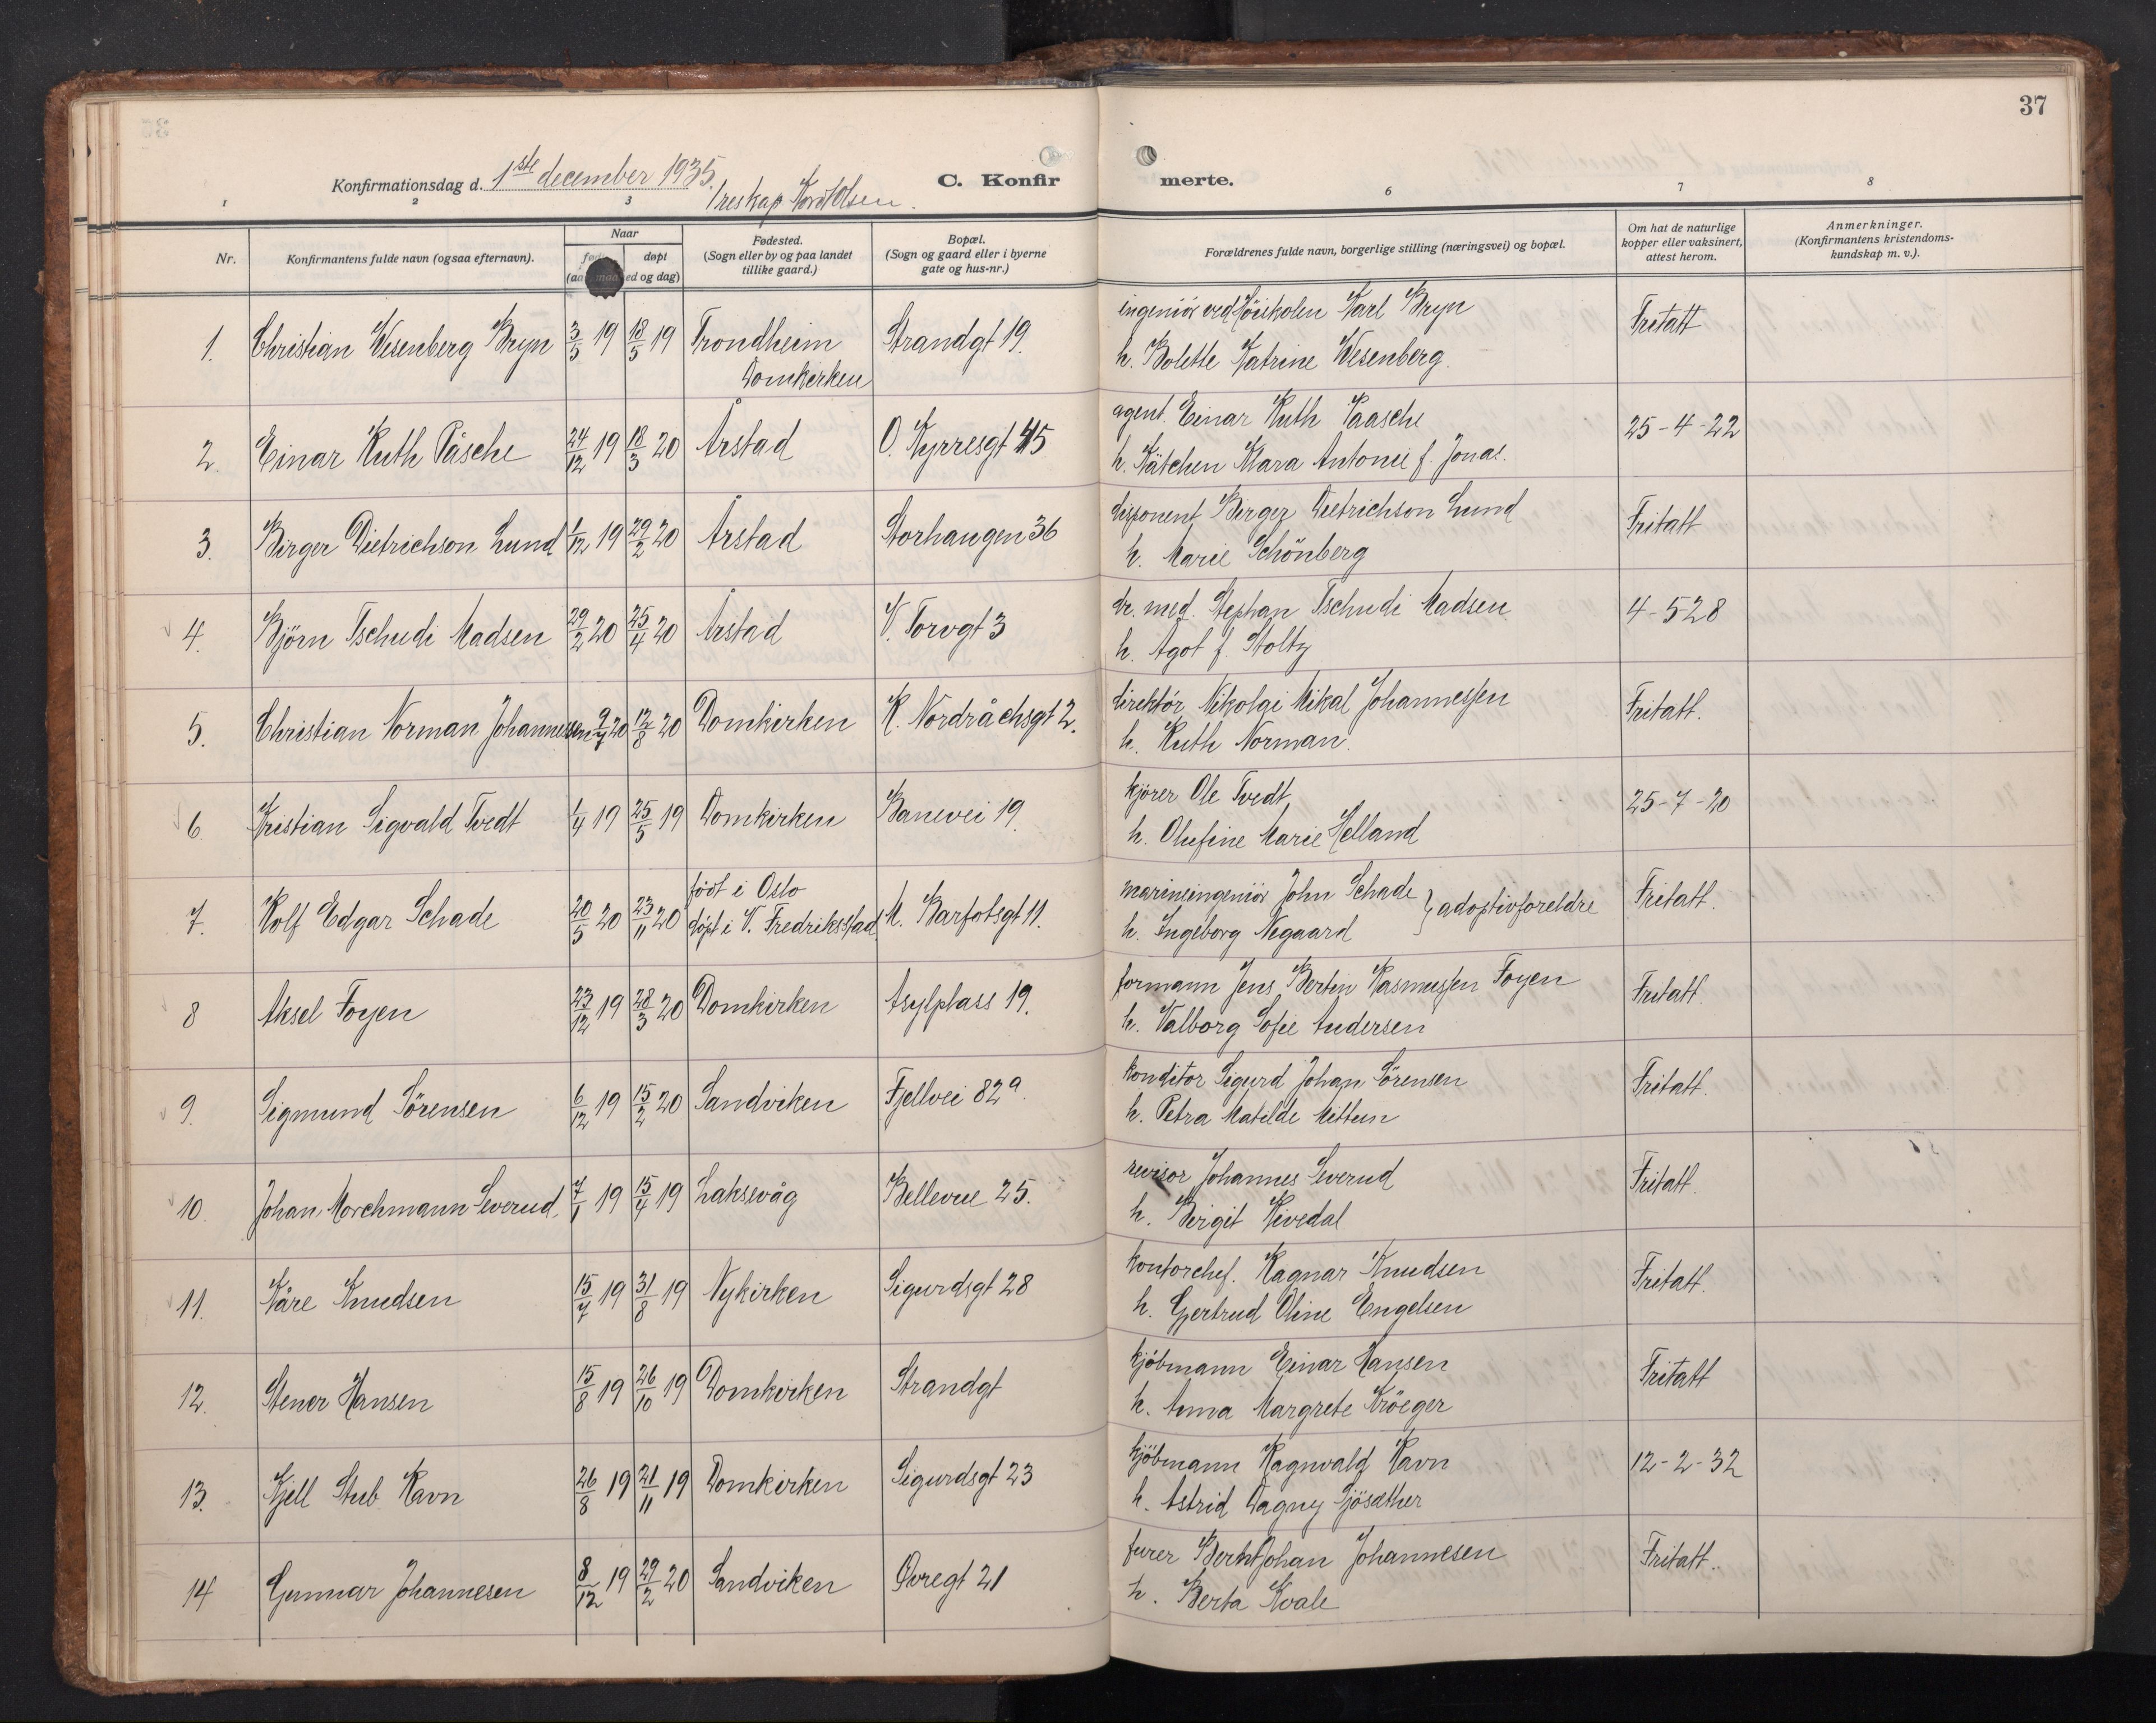 37
Konfirmationsdag d. 1ste december 1935. C. Konfirmerte.
1 2 3 6 7 8
Nr. Konfirmantens fulde navn (ogsaa efternavn). Naar født døpt (aar, maaned og dag) Fødested. (Sogn eller by og paa landet tillike gaard.) Bopæl. (Sogn og gaard eller i byerne gate og hus-nr.) Forældrenes fulde navn, borgerlige stilling (næringsvei) og bopæl. Om hat de naturlige kopper eller vaksinert, attest herom. Anmerkninger. (Konfirmantens kristendoms- kundskap m. v.).
1. Christian Wesenberg Bryn 3/5 19 18/5 19 Trondheim Domkirken Strandgt 19. ingeniör ved Höiskolen Karl Bryn Fritatt
h. Bolette Katrine Wesenberg.
2. Einar Ruth Påsche 24/12 19 18/3 20 Årstad O. Kyrresgt 45 agent Einar Ruth Paasche 25-4-22
h. Kätchen Klara Antonie f. Jonas.
3. Birger Dietrichson Lund 1/12 19 29/2 20 Årstad Storhaugen 36 disponent Birger Dietrichson Lund Fritatt
h. Marie Schönberg
4. Björn Tschudi Madsen 29/2 20 25/4 20 Årstad V. Torvgt 3 dr. med. Stephan Tschudi Madsen 4-5-28
h. Agot f. Stoltz
5. Christian Norman Johannessen 9/7 20 12/8 20 Domkirken R. Nordråchsgt 2. direktör Nikolai Mikal Johannessen Fritatt.
h. Ruth Norman.
6 Kristian Sigvald Tvedt 1/4 19 25/5 19 Domkirken Banevei 19. kjörer Ole Tvedt 25-7-20
h. Olufine Marie Helland
7. Rolf Edgar Schade 20/5 20 23/11 20 födt i Oslo döpt i V. Fredriksstad M. Barfotsgt 11. marineingeniör John Schade } adoptivforeldre Fritatt.
h. Ingeborg Negaard
8 Aksel Foyen 23/12 19 28/3 20 Domkirken Asylplass 19. formann Jens Bertin Rasmussen Foyen Fritatt.
h. Valborg Sofie Andersen
9. Sigmund Sörensen 6/12 19 15/2 20 Sandviken Fjellvei 82a. konditor Sigurd Johan Sörensen Fritatt.
h. Petra Matilde Mittun
10. Johan Morchmann Severud. 7/1 19 15/4 19 Laksevåg Bellevue 25. revisor Johannes Severud Fritatt.
h. Birgit Kivedal
11. Kåre Knudsen 15/7 19 31/8 19 Nykirken Sigurdsgt 28 kontorchef. Ragnar Knudsen Fritatt.
h. Gjertrud Oline Engelsen
12. Stener Hansen 15/8 19 26/10 19 Domkirken Strandgt kjöbmann Einar Hansen Fritatt
h. Anna Margrete Kröeger
13. Kjell Stub Ravn 26/8 19 21/11 19 Domkirken Sigurdsgt 23 kjöbmann Ragnvald Ravn 12-2-32
h. Astrid Dagny Sjösæther
14 Gunnar Johannesen 8/12 19 29/2 20 Sandviken Øvregt 21 furer Bernt Johan Johannesen Fritatt.
h. Berta Kvale